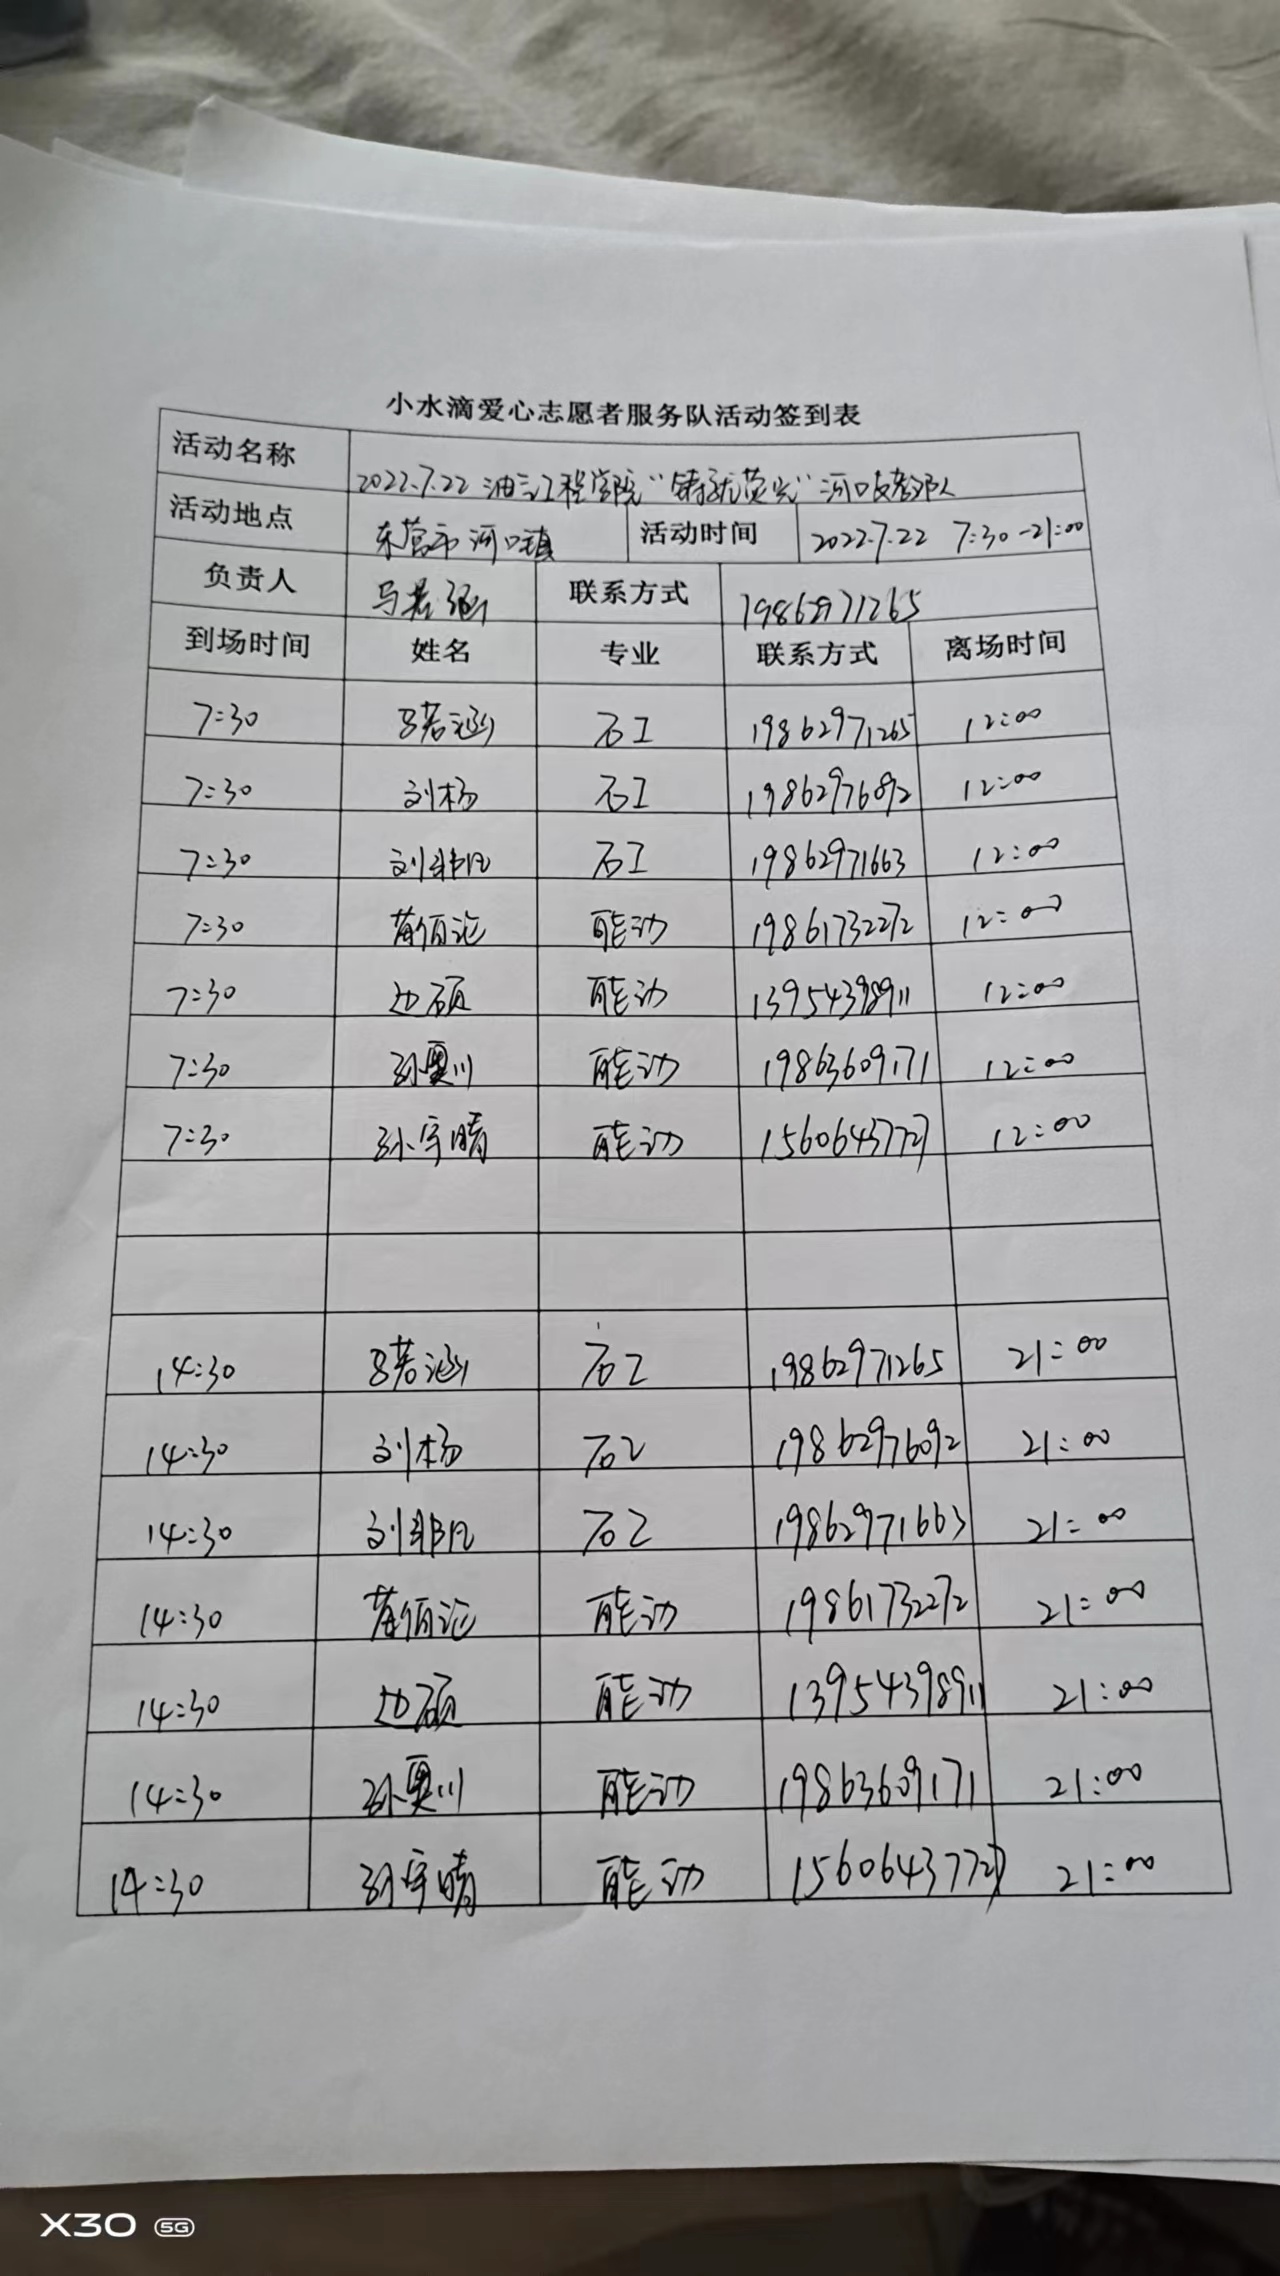 小水滴爱心志愿者服务队活动签到表
活动名称 2022.7.22 油工程学院“铸就荧光”河口支教队
活动地点 东营市河口镇 活动时间 2022.7.22 7:30-21:00
负责人 马若涵 联系方式 19862971265
到场时间 姓名 专业 联系方式 离场时间
7:30 马若涵 石工 19862971265 12:00
7:30 刘杨 石工 19862976092 12:00
7:30 刘非凡 石工 19862971663 12:00
7:30 能动 19861732272 12:00
7:30 边硕 能动 13954398911 12:00
7:30 孙奥川 能动 19863609171 12:00
7:30 孙宇晴 能动 15606437727 12:00
14:30 马若涵 石工 19862971265 21:00
14:30 刘杨 石工 19862976092 21:00
14:30 刘非凡 石工 19862971663 21:00
14:30 能动 19861732272 21:00
14:30 边硕 能动 13954398911 21:00
14:30 孙奥川 能动 19863609171 21:00
14:30 孙宇晴 能动 15606437727 21:00
X30 5G